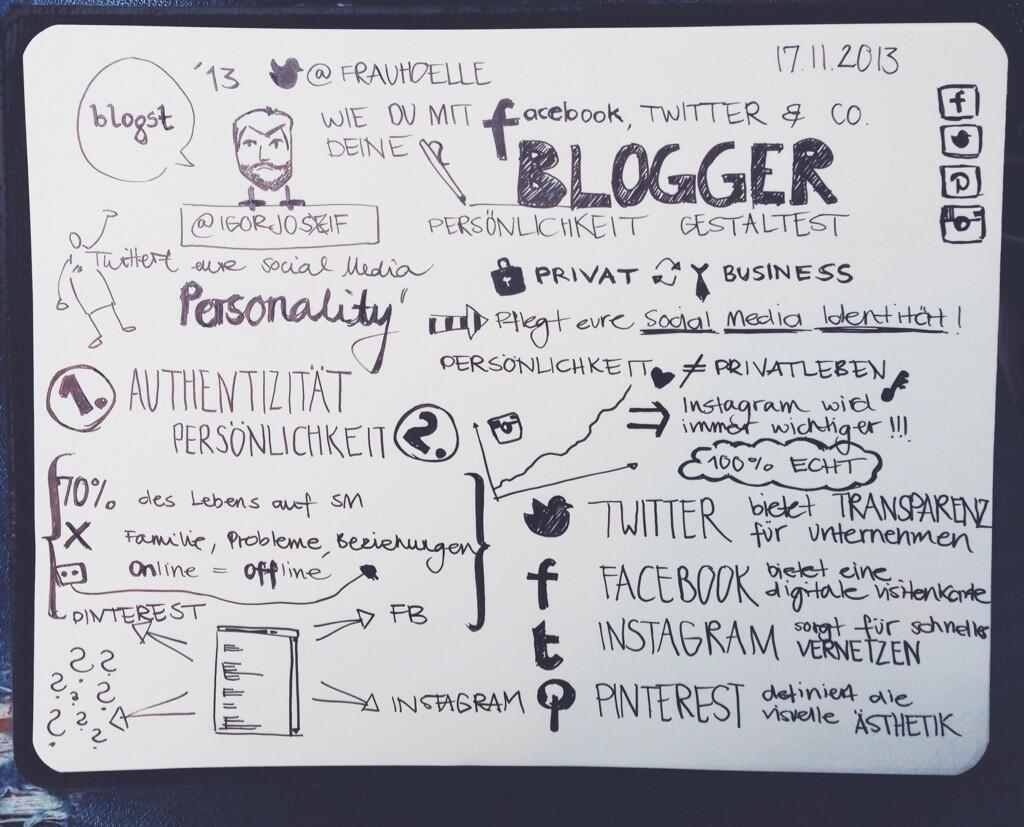 blogst '13 @FRAUHOELLE 17.11.2013
WIE DU MIT facebook, TWITTER & CO.
DEINE BLOGGER
PERSÖNLICHKEIT GESTALTEST
@IGORJOSEIF
Twittert eure Social Media
Personality"
PRIVAT BUSINESS
Pflegt eure Social Media Identität!
PERSÖNLICHKEIT ≠ PRIVATLEBEN
Instagram wird
immer wichtiger!!!
100% ECHT
1. AUTHENTIZITÄT
PERSÖNLICHKEIT 2.
70% des Lebens auf SM
X Familie, Probleme, Beziehungen
Online = Offline
PINTEREST FB
INSTAGRAM
TWITTER bietet TRANSPARENZ
für Unternehmen
f FACEBOOK bietet eine
digitale Visitenkarte
t INSTAGRAM sorgt für schnelles
VERNETZEN
PINTEREST definiert die
visuelle ÄSTHETIK